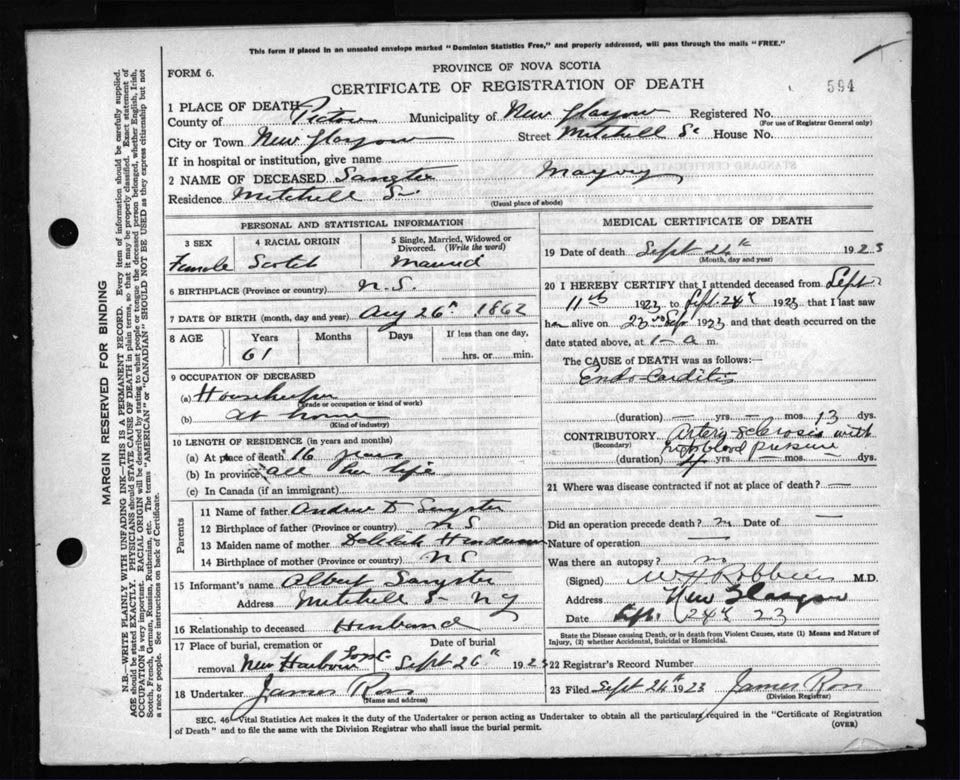 This form if placed in an unsealed envelope marked "Dominion Statistics Free," and properly addressed, will pass through the mails "FREE."
PROVINCE OF NOVA SCOTIA
FORM 6.
CERTIFICATE OF REGISTRATION OF DEATH
594
1 PLACE OF DEATH
County of Pictou Municipality of New Glasgow Registered No.
(For use of Registrar General only)
City or Town New Glasgow Street Mitchell St House No.
If in hospital or institution, give name
2 NAME OF DECEASED Sangster
Residence Mitchell St
(Usual place of abode)
PERSONAL AND STATISTICAL INFORMATION
3 SEX 4 RACIAL ORIGIN 5 Single, Married, Widowed or Divorced. (Write the word)
Female Scotch Married
6 BIRTHPLACE (Province or country) N.S.
7 DATE OF BIRTH (month, day and year) Aug 26th 1862
8 AGE Years Months Days If less than one day,
61 hrs. or min.
9 OCCUPATION OF DECEASED
(a) Housekeeper
(Trade or occupation or kind of work)
(b) at home
(Kind of industry)
10 LENGTH OF RESIDENCE (in years and months)
(a) At place of death 16 years
(b) In province all her life
(c) In Canada (if an immigrant)
Parents
11 Name of father Andrew D Sangster
12 Birthplace of father (Province or country) N S
13 Maiden name of mother Delilah Henderson
14 Birthplace of mother (Province or country) N S
15 Informant's name Albert Sangster
Address Mitchell St N G
16 Relationship to deceased Husband
17 Place of burial, cremation or removal New Harbour Date of burial Sept 26th 1923
18 Undertaker James Ross
(Name and address)
MEDICAL CERTIFICATE OF DEATH
19 Date of death Sept 24th 1923
(Month, day and year)
20 I HEREBY CERTIFY that I attended deceased from Sept
11th 1923 to Sept. 24th 1923 that I last saw
her alive on 23rd Sept 1923 and that death occurred on the
date stated above, at 1 - a m.
The CAUSE of DEATH was as follows:
Endo-Carditis
(duration) — yrs. — mos. 13 dys.
CONTRIBUTORY Artery Sclerosis with
(Secondary) high blood pressure
(duration) yrs. — mos. — dys.
21 Where was disease contracted if not at place of death? —
Did an operation precede death? Date of —
Nature of operation —
Was there an autopsy? no
(Signed) W H Robbins M.D.
Address New Glasgow
Date Sept. 24th 23
State the Disease causing Death, or in death from Violent Causes, state (1) Means and Nature of
Injury, (2) whether Accidental, Suicidal or Homicidal.
22 Registrar's Record Number
23 Filed Sept 24th 1923 James Ross
(Division Registrar)
SEC. 46 Vital Statistics Act makes it the duty of the Undertaker or person acting as Undertaker to obtain all the particulars required in the "Certificate of Registration
of Death" and to file the same with the Division Registrar who shall issue the burial permit.
(OVER)
MARGIN RESERVED FOR BINDING
N.B.—WRITE PLAINLY WITH UNFADING INK—THIS IS A PERMANENT RECORD. Every item of information should be carefully supplied.
AGE should be stated EXACTLY. PHYSICIANS should STATE CAUSE OF DEATH in plain terms, so that it may be properly classified. Exact statement of
OCCUPATION is very important. RACIAL ORIGIN will be described by stating to what people or tongue the deceased person belonged, whether English, Irish,
Scotch, French, German, Russian, Ruthenian, etc. The terms "AMERICAN" or "CANADIAN" SHOULD NOT BE USED as they express citizenship but not
a race or people. See instructions on back of Certificate.